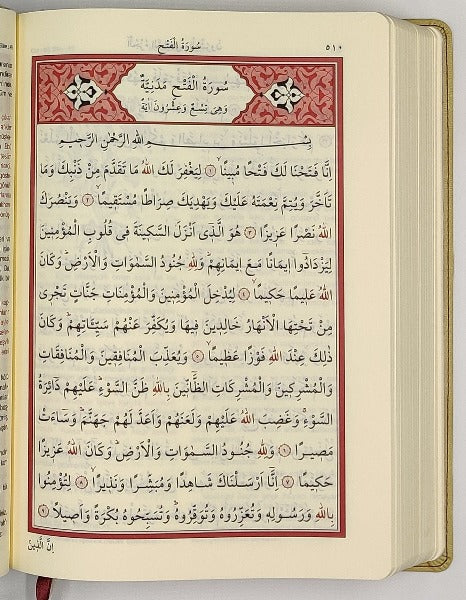 سُورَةُ الْفَتْحِ
٥١٠
سُورَةُ الْفَتْحِ مَدَنِيَّةٌ
وَهِيَ تِسْعٌ وَعِشْرُونَ اٰيَةً
بِسْمِ اللّٰهِ الرَّحْمٰنِ الرَّحِيمِ
اِنَّا فَتَحْنَا لَكَ فَتْحًا مُبِينًاۙ ﴿١﴾ لِيَغْفِرَ لَكَ اللّٰهُ مَا تَقَدَّمَ مِنْ ذَنْبِكَ وَمَا
تَاَخَّرَ وَيُتِمَّ نِعْمَتَهُ عَلَيْكَ وَيَهْدِيَكَ صِرَاطًا مُسْتَقِيمًاۙ ﴿٢﴾ وَيَنْصُرَكَ
اللّٰهُ نَصْرًا عَزِيزًا ﴿٣﴾ هُوَ الَّذ۪ٓي اَنْزَلَ السَّكِينَةَ فِي قُلُوبِ الْمُؤْمِنِينَ
لِيَزْدَادُٓوا اِيمَانًا مَعَ اِيمَانِهِمْۜ وَلِلّٰهِ جُنُودُ السَّمٰوَاتِ وَالْاَرْضِۜ وَكَانَ
اللّٰهُ عَلِيمًا حَكِيمًاۙ ﴿٤﴾ لِيُدْخِلَ الْمُؤْمِنِينَ وَالْمُؤْمِنَاتِ جَنَّاتٍ تَجْرِي
مِنْ تَحْتِهَا الْاَنْهَارُ خَالِدِينَ فِيهَا وَيُكَفِّرَ عَنْهُمْ سَيِّـَٔاتِهِمْۜ وَكَانَ
ذٰلِكَ عِنْدَ اللّٰهِ فَوْزًا عَظِيمًاۙ ﴿٥﴾ وَيُعَذِّبَ الْمُنَافِقِينَ وَالْمُنَافِقَاتِ
وَالْمُشْرِكِينَ وَالْمُشْرِكَاتِ الظَّٓانِّينَ بِاللّٰهِ ظَنَّ السَّوْءِۜ عَلَيْهِمْ دَٓائِرَةُ
السَّوْءِۚ وَغَضِبَ اللّٰهُ عَلَيْهِمْ وَلَعَنَهُمْ وَاَعَدَّ لَهُمْ جَهَنَّمَۜ وَسَٓاءَتْ
مَصِيرًا ﴿٦﴾ وَلِلّٰهِ جُنُودُ السَّمٰوَاتِ وَالْاَرْضِۜ وَكَانَ اللّٰهُ عَزِيزًا
حَكِيمًا ﴿٧﴾ اِنَّٓا اَرْسَلْنَاكَ شَاهِدًا وَمُبَشِّرًا وَنَذِيرًاۙ ﴿٨﴾ لِتُؤْمِنُوا
بِاللّٰهِ وَرَسُولِهِ وَتُعَزِّرُوهُ وَتُوَقِّرُوهُۜ وَتُسَبِّحُوهُ بُكْرَةً وَاَصِيلًا ﴿٩﴾
اِنَّ الَّذِينَ